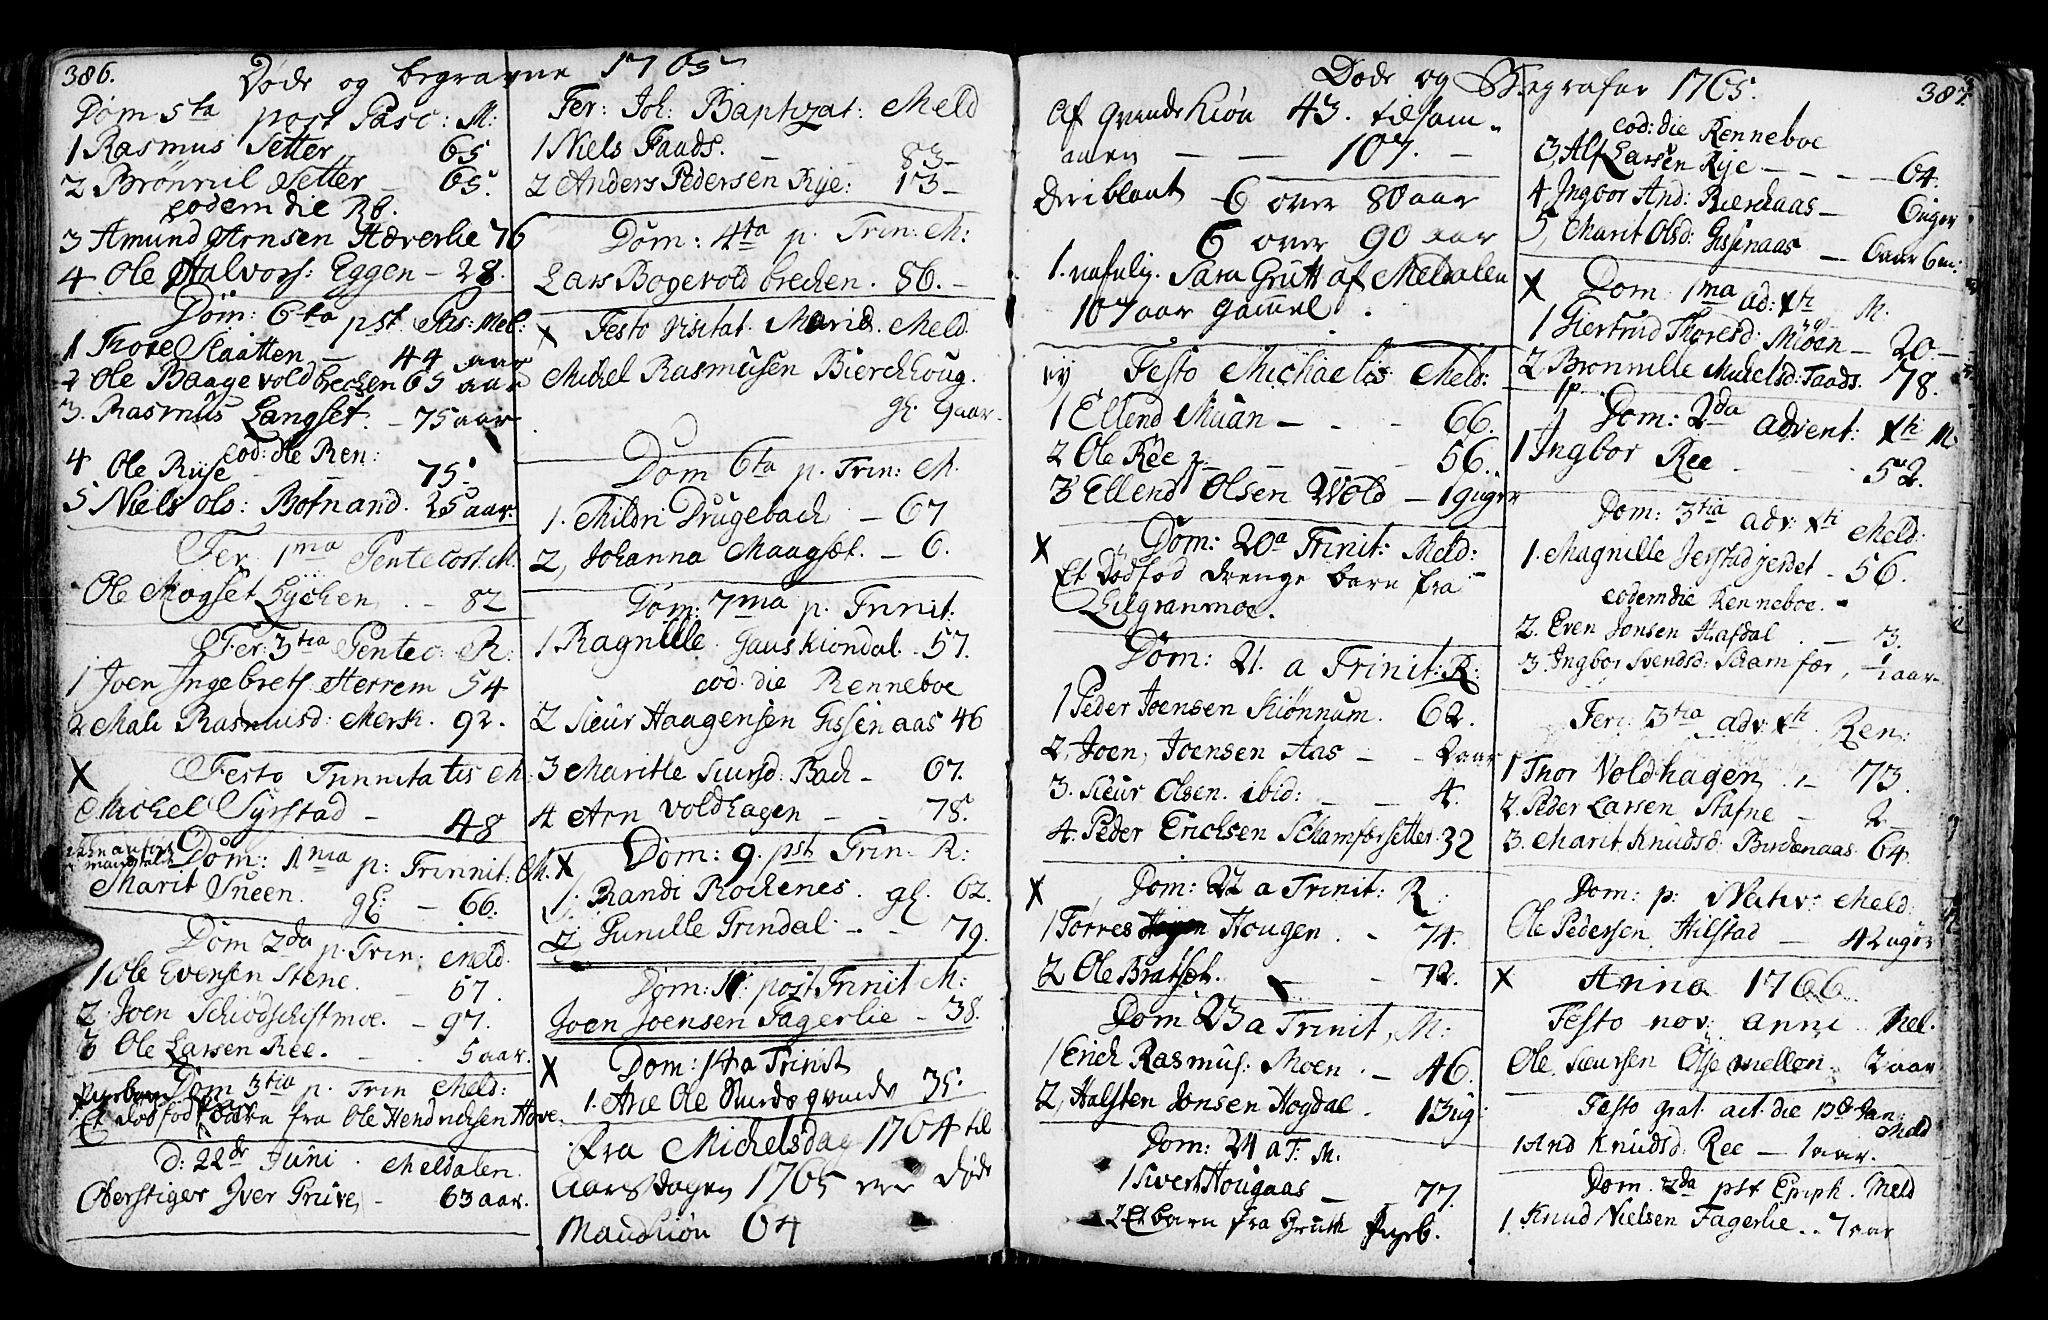 386.
Døde og begravne 1765
Dom 5ta post Pasc: M:
1 Rasmus Setter 65
2 Brønnil Setter – 65.
eodem die Rb.
3 Amund Arnsen Hæverlie 76
4 Ole Halvors: Eggen – 28.
Dom: 6ta pst Pas: Mel:
1 Thore Slaatten – 44 aar
2 Ole Baagevold brechen 65 aar
3. Rasmus Langset. – 75 aar
eod: die Ren:
4 Ole Ryse – 75.
5 Niels Ols: Botnand. 25 aar.
Fer. 1ma Pentecost: M.
Ole Mogset Lychen. – 82
Fer: 3tia Pentec: R:
1 Joen Ingebrets: Herrem 54
2 Mali Rasmusd: Mersk. 92.
X Festo Trinitatis M.
Michel Syrstad – 48
Dom: 1ma p: Trinnit: M.
Marit Sneen. gl: – 66.
Dom 2da p. Trin: Meld.
1 Ole Evensen Stene. – 67.
2. Joen Schiødschiftmoe. – 97.
3 Ole Larsen Ree. – 5 aar.
Dom 3tia p. Trin Meld:
Et dødfød barn fra Ole Hendrichsen Hove.
D: 22de Juni. Meldalen.
Oberstiger Iver Gruve, – 63 aar.
Fer: Joh: Baptizat: Meld
1 Niels Faads. – 83 –
2 Anders Pedersen Rye: 13 –
Dom: 4ta p. Trin: M:
Lars Bogevold brechen. 86. –
X Festo Visitat. Mariæ. Meld.
Michel Rasmusen Bierchhoug.
gl. 9 aar.
Dom 6ta p. Trin: M.
1. Mildri Drugebach – 67
2, Johanna Maagset. – 6.
Dom: 7ma p. Trinit:
1 Ragnille Gauskiondal. 57.
eod: die Renneboe
2 Siur Haagensen Gissenaas 46
3 Maritle Siursd: Bach – 67.
4 Arn Voldhagen – – 78.
X Dom: 9. pst Trin: R:
1. Randi Rochenes. gl. 62.
2 Gunille Grindal. – 79.
Dom: 11: post Trinit M:
Joen Joensen Fagerlie – 38.
X Dom: 14 a Trinit
1. Arie Ole Snurdegrunde 35.
Fra Michelsdag 1764 til
Aarsdagen 1765 ere døde
Mandkiøn 64
Døde og Begrafne 1765.
387.
Af qvindekiøn 43. tilsam-
men – – 107. –
deriblant 6 over 80 aar
6 over 90 aar
1. nafnlig. Sara Grutt af Meldalen
107 aar gammel.
Festo Michaelis Meld:
1 Ellend Muan – – 66.
2 Ole Røe – – 56.
3 Ellend Olsen Wold – 19 uger
X Dom: 20a Trinit: Meld:
Et dødfød drenge barn fra
Hilgranmoe.
Dom: 21. a Trinit: R:
1 Peder Joensen Skiønnum. 62.
2, Joen, Joensen Aas – – 2 aar
3. Siur Olsen. ibid: – – 4.
4. Peder Erichsen Schamfersetter. 32
X Dom: 22 a Trinit: R:
1 Torres Hougen. – 74.
2 Ole Bratset. – – 72.
Dom 23 a Trinit, M:
1 Erich Rasmus: Moen. – 46.
2, Halsten Jonsen Hogdal. 13 ug:
Dom: 24 a T. M.
1 Sivert Hougaas – 77.
2. Et barn fra Gruth Pyrb.
eod: die Renneboe
3, Alf Larsen Rye – – – 64.
4 Ingbor And: Bierchaas – 6 uger
5, Marit Olsd: Gissenaas – 6 aar 6 m:
X Dom: 1ma ad: Xti M:
1 Giertrud Thoresd: Miöen – 20. –
2 Bronnille Michelsd: Faads. 78.
Dom: 2da advent: Xti M.
1 Ingbor Ree – 52.
Dom: 3tia adv: Xti Meld:
1. Magnille Jerstadjerdet – 56.
eodem die Renneboe.
2. Even Jonsen Hafdal. – 3.
3. Ingbor Svendsd: Schamfær, 1/2 aar.
Feri: 3tia adv: Xti Ren:
1 Thor Voldhagen – 73.
2. Peder Larsen Stafne – 2 –
3. Marit Knudsd: Burdenaas 64.
Dom: p: Nativ: Meld:
Ole Pedersen Hilstad – 42 uger
X Anno 1766
Festo nov: anni Mel.
Ole Siursen Olsemellen. 2 aar
Festo grat. act. die 13de Jan:
Meld
1 And Knudsd: Ree – 1 aar.
Dom. 2da pst Epiph. Meld
1. Knud Nielsen Fagerlie.. 7 aar